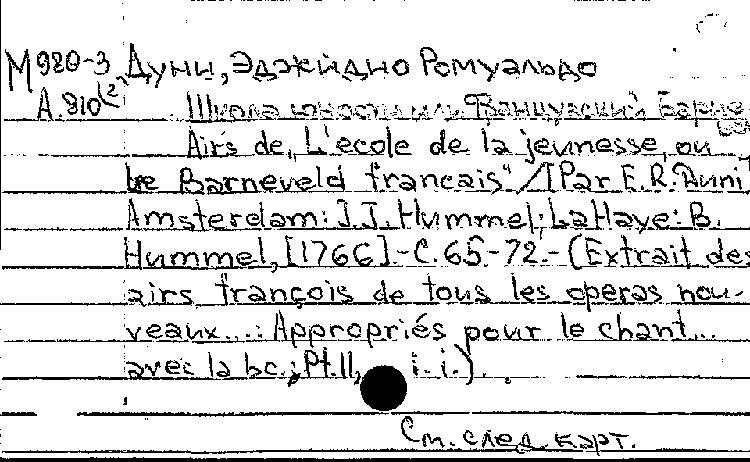 М980-3 Дуни, Эджидио Ромуальдо
А.810(2) Школа юности или Французский Барне
Airs de „L'ecole de la jeunesse, ou
le Barneveld francais" / [Par E.R. Duni
Amsterdam: J.J. Hummel; La Haye: B.
Hummel, [1766].-С. 65.-72.- (Extrait des
airs françois de tous les operas nou-
veaux...: Appropriés pour le chant...
avec la bc.; Pt.II, i.i.).
См. след. карт.